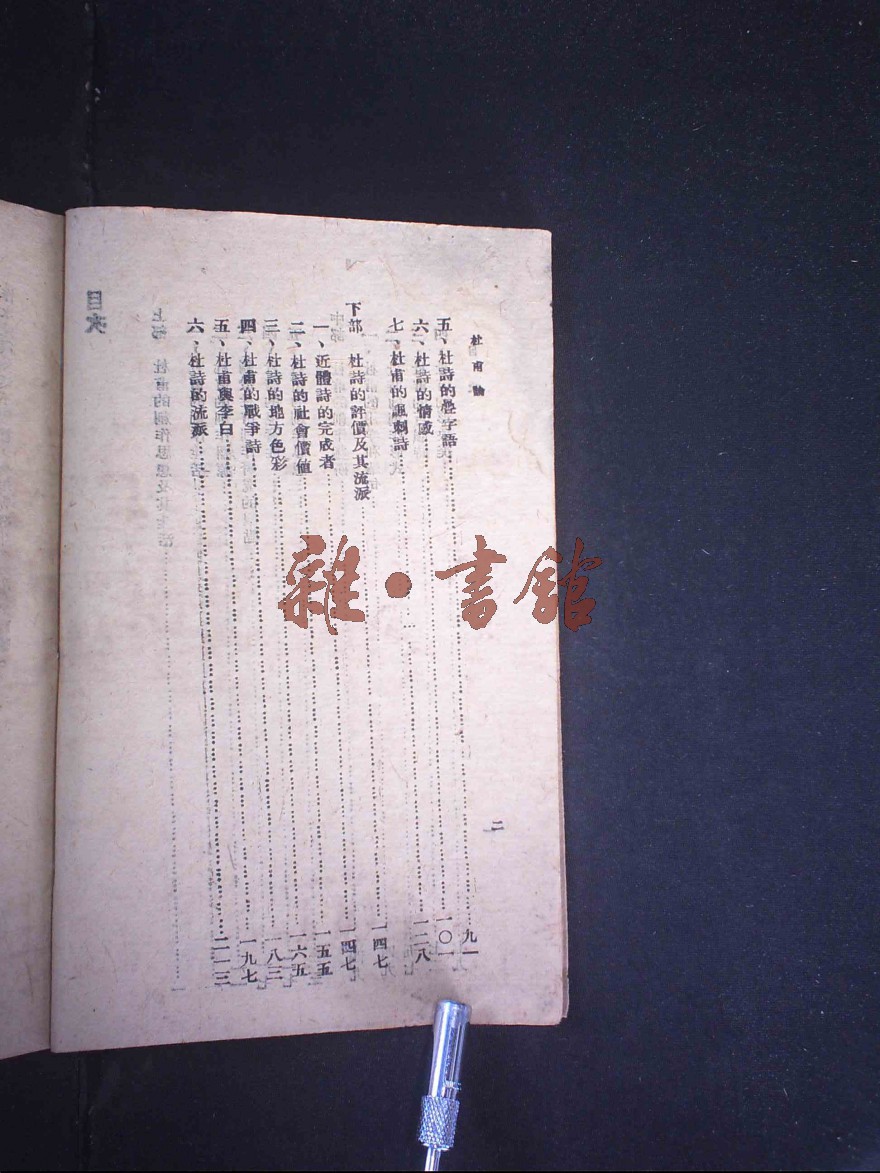 杜甫論
五、杜詩的疊字語……九一
六、杜詩的情感……一〇一
七、杜甫的諷刺詩……一二八
下部 杜詩的評價及其流派……一四七
一、近體詩的完成者……一四七
二、杜詩的社會價值……一五五
三、杜詩的地方色彩……一六五
四、杜甫的戰爭詩……一八三
五、杜甫與李白……一九七
六、杜詩的流派……二一三
二
雜·書館